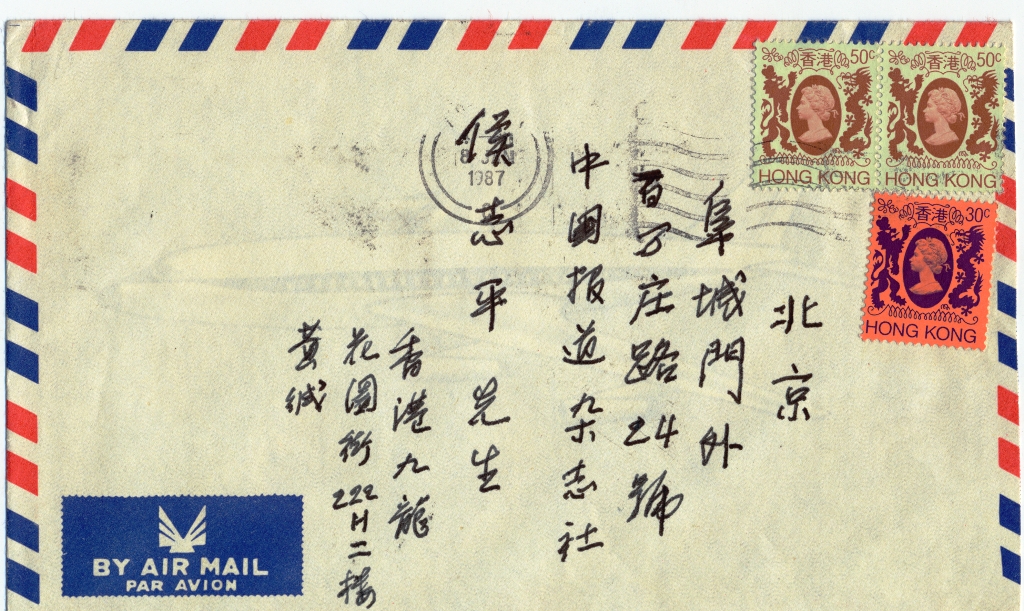 香港 50c
HONG KONG
香港 50c
HONG KONG
香港 30c
HONG KONG
1987
北京
阜城門外
百万庄路24號
中国报道杂志社
侯志平 先生
香港九龍
花園街222H二楼
黃
BY AIR MAIL
PAR AVION